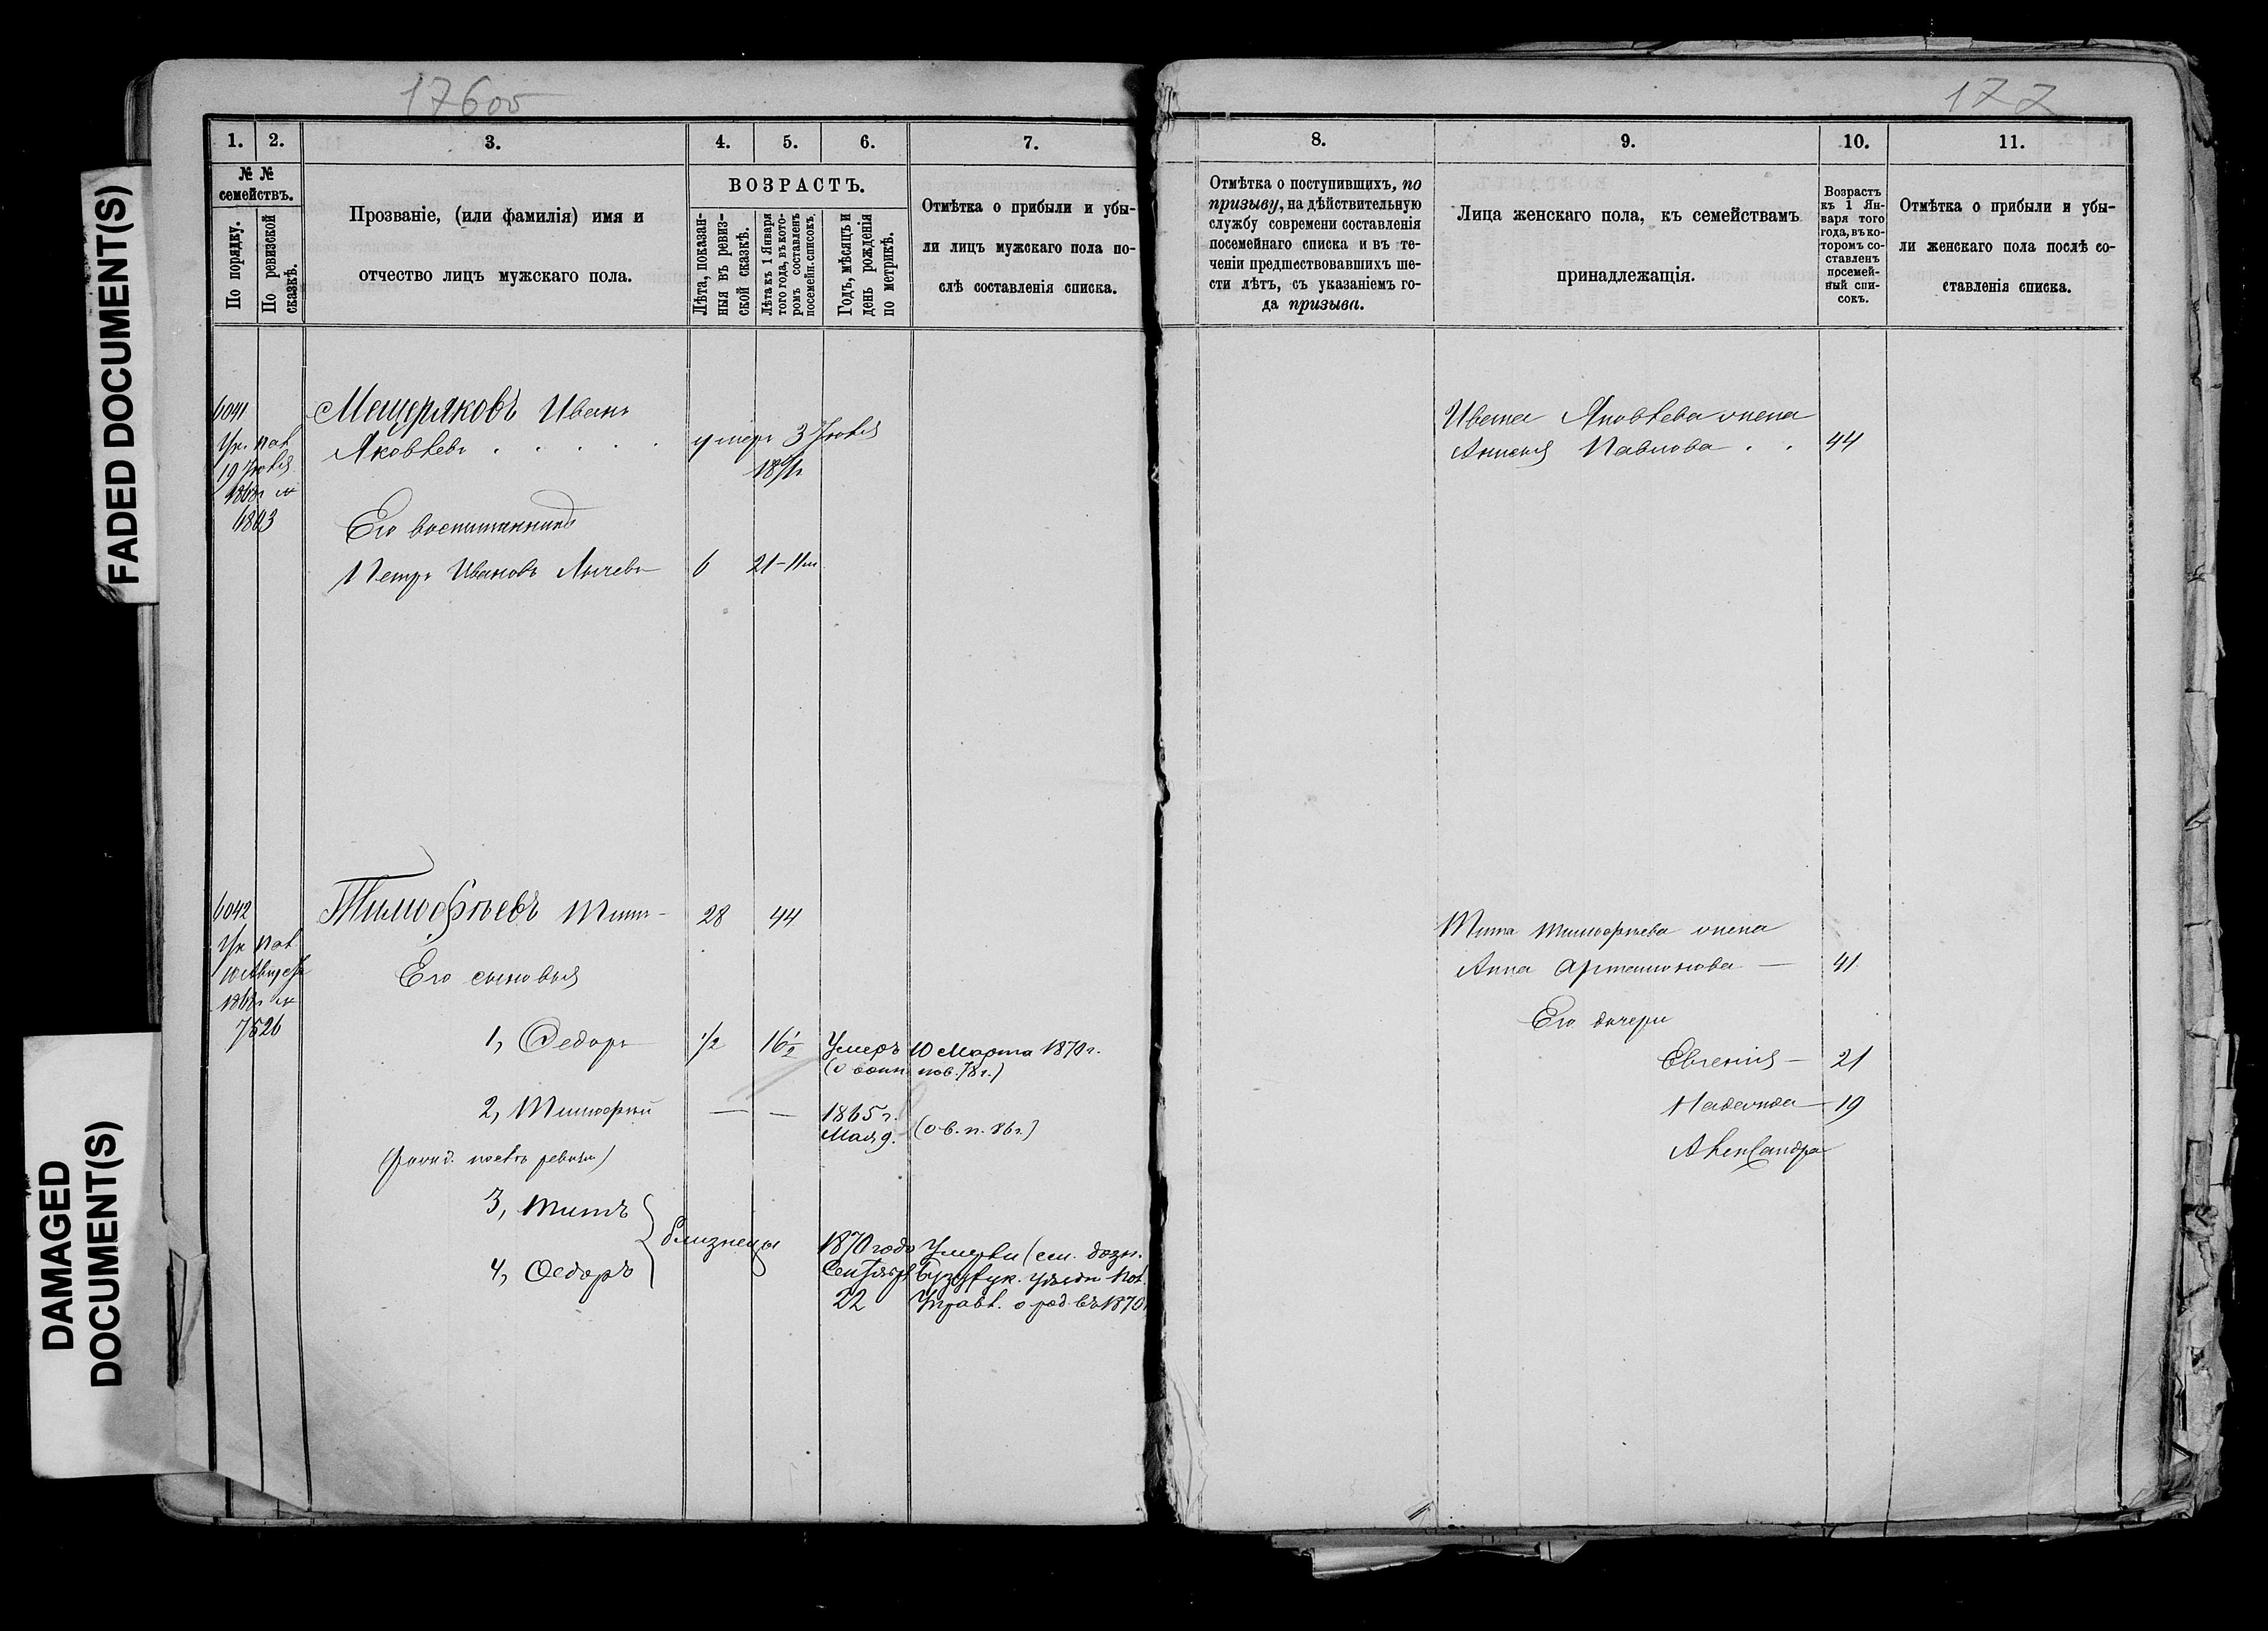 176об
177
FADED DOCUMENT(S)
DAMAGED
DOCUMENT(S)
1. 2. 3. 4. 5. 6. 7.
№ №
семействъ.
По порядку.
По ревизской
сказкѣ.
Прозваніе, (или фамилія) имя и
отчество лицъ мужскаго пола.
ВОЗРАСТЪ.
Лѣта, показан-
ныя въ ревиз-
ской сказкѣ.
Лѣта къ 1 Января
того года, въ кото-
ромъ составленъ
посемейн. списокъ.
Годъ, мѣсяцъ и
день рожденія
по метрикѣ.
Отмѣтка о прибыли и убы-
ли лицъ мужскаго пола по-
слѣ составленія списка.
6041
Ук. пал.
19 Іюля
1868 г №
6803
Мещеряковъ Иванъ
Яковлевъ . . . . .
умеръ 3 Іюля
Его воспитанникъ
Петръ Ивановъ 6 21-11 м
6042
Ук. пал.
10 Август
1868 г №
7526
Тимофѣевъ Титъ - 28 44
Его сыновья
1, Федоръ 1/2 16 1/2 Умеръ 10 Марта 1870 г.
нов. 78 г.)
2, Тимофѣй — — 1865 г.
Мая 9. (о в. п. 86 г.)
(рожд. послѣ ревизіи)
3, Титъ
близнецы
4, Федоръ
1870 года Умерли (см. дозн.
Сентября Бузулук. уѣздн. пол.
22 Управл. о род. въ 1870
8. 9. 10. 11.
Отмѣтка о поступившихъ, по
призыву, на дѣйствительную
службу современи составленія
посемейнаго списка и въ те-
ченіи предшествовавшихъ ше-
сти лѣтъ, съ указаніемъ го-
да призыва.
Лица женскаго пола, къ семействамъ
принадлежащія.
Возрастъ
къ 1 Ян-
варя того
года, въ ко-
торомъ со-
ставленъ
посемей-
ный спи-
сокъ.
Отмѣтка о прибыли и убы-
ли женскаго пола послѣ со-
ставленія списка.
Ивана Яковлева жена
Анисья Павлова . . 44
Тита Тимофѣева жена
Анна Артамонова — 41
Его дочери
Евгенія — 21
Надежда — 19
Александра